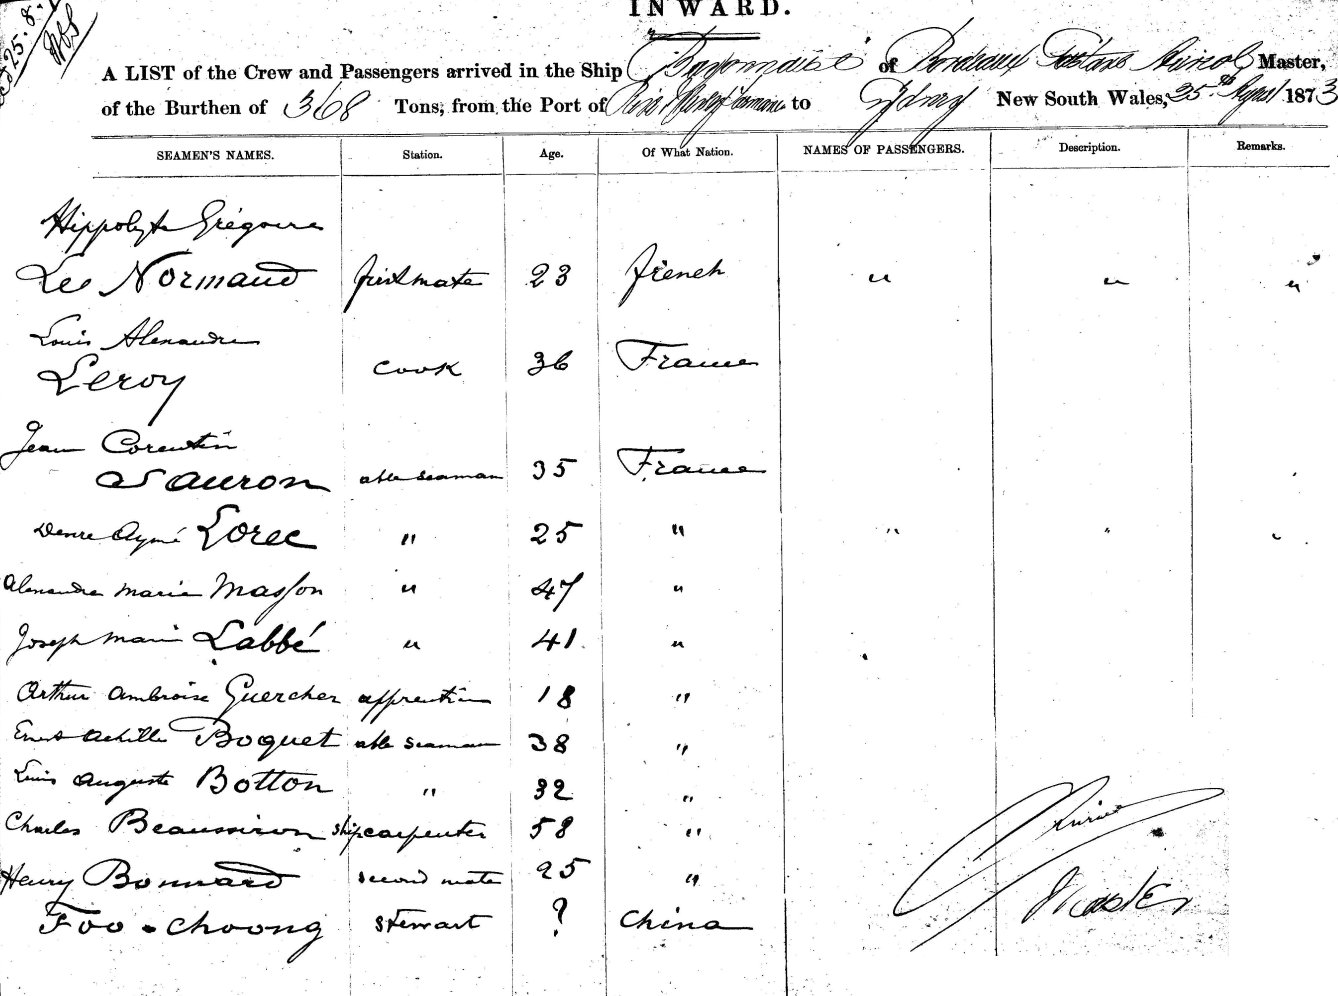 25.8.
INWARD.
A LIST of the Crew and Passengers arrived in the Ship "Bayonnaise" of Bordeaux Master,
of the Burthen of 368 Tons, from the Port of to Sydney New South Wales, 25th August 1873
SEAMEN'S NAMES. Station. Age. Of What Nation. NAMES OF PASSENGERS. Description. Remarks.
Hippolyte Grégoire
Le Normand first mate 23 french " " "
Louis Alexandre
Leroy cook 36 France
Jean Corentin
Sauron able seaman 35 France
Désiré Aymé Lorec " 25 " " "
Alexandre Marie Masson " 47 "
Joseph Marie Labbé " 41 "
Arthur Ambroise Guercher apprentice 18 "
Ernest Achille Boquet able seaman 38 "
Louis Auguste Botton " 32 "
Charles Beaussiron ship carpenter 58 "
Henry Bonnard second mate 25 "
Foo-Choong stewart ? China
Master